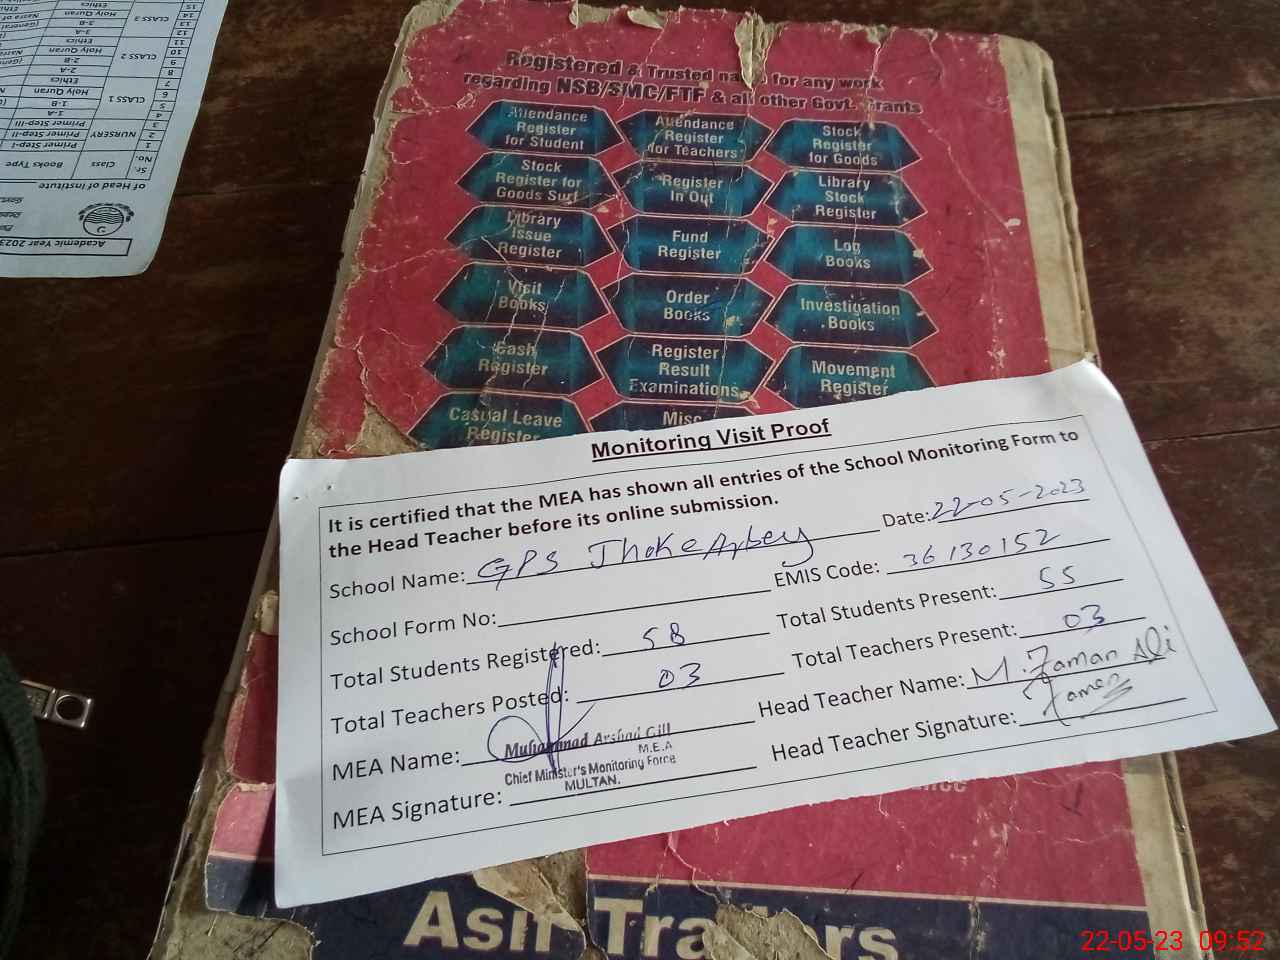 Registered & Trusted name for any work
regarding NSB/SMC/FTF & all other Govt. Grants
Attendance Register for Student
Attendance Register for Teachers
Stock Register for Goods
Stock Register for Goods Surf
Register In Out
Library Stock Register
Library Issue Register
Fund Register
Log Books
Visit Books
Order Books
Investigation Books
Cash Register
Register Result Examinations
Movement Register
Casual Leave Register
Misc
Monitoring Visit Proof
It is certified that the MEA has shown all entries of the School Monitoring Form to
the Head Teacher before its online submission.
Date: 22-05-2023
School Name: GPS Jhoke
EMIS Code: 36130152
School Form No:
Total Students Registered: 58
Total Students Present: 55
Total Teachers Posted: 03
Total Teachers Present: 03
MEA Name: Muhammad Arshad Gill
M.E.A
Chief Minister's Monitoring Force
MULTAN.
Head Teacher Name: M. Zaman Ali
MEA Signature:
Head Teacher Signature: Zaman
Asif Traders
of Head of Institute
Academic Year 2023
Sr. No. Class Books Type
1 NURSERY Primer Step-I
2 Primer Step-II
3 Primer Step-III
4 CLASS 1 1-A
5 1-B
6 Holy Quran
7 Ethics
8 CLASS 2 2-A
9 2-B
10 Holy Quran
11 Ethics
12 CLASS 3 3-A
13 3-B
14 Holy Quran
15 Ethics
22-05-23 09:52